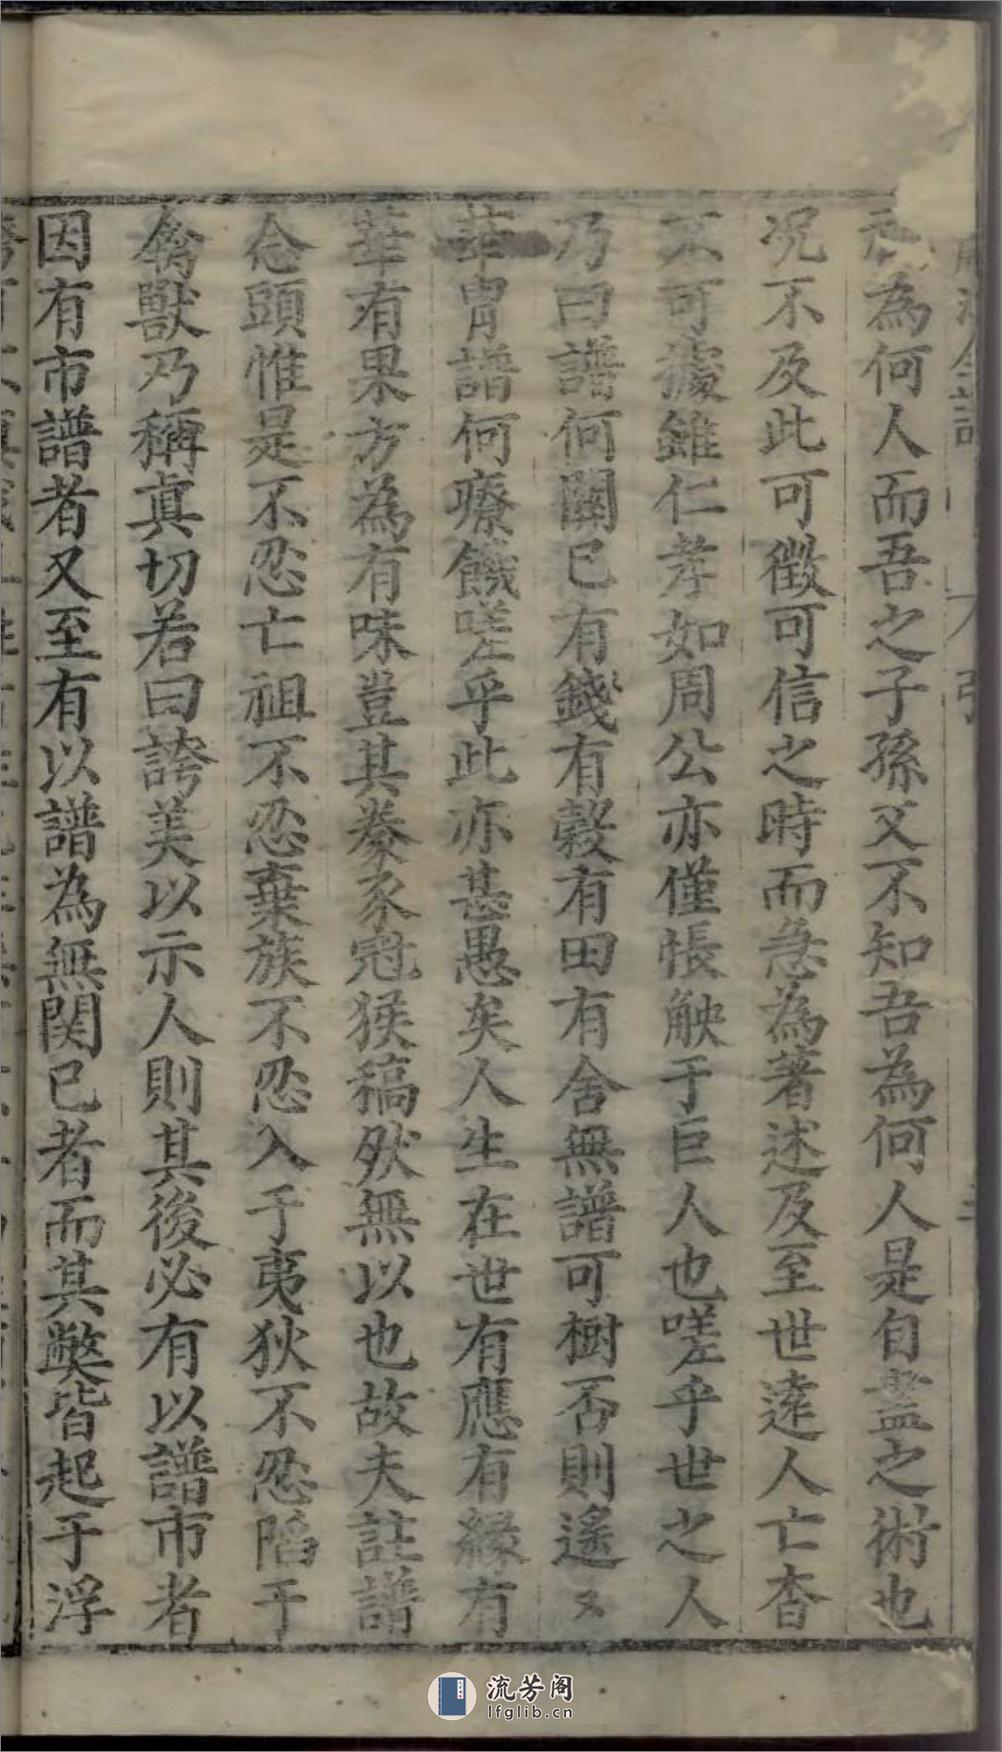 為何人而吾之子孫又不知吾為何人是自盡之術也
况不及此可徵可信之時而急為著述及至世遠人亡杳
不可據雖仁孝如周公亦僅悵觖于巨人也嗟乎世之人
乃曰譜何關已有錢有穀有田有舍無譜可樹否則遙〻
華胄譜何療饑嗟乎此亦甚愚矣人生在世有應有緣有
華有果方為有味豈其豢豕冠猴稿然無以也故夫註譜
念頭惟是不忍亡祖不忍棄族不忍入于夷狄不忍陷于
禽獸乃稱真切若曰誇美以示人則其後必有以譜市者
因有市譜者又至有以譜為無関已者而其獘皆起于浮
流芳阁
lfglib.cn